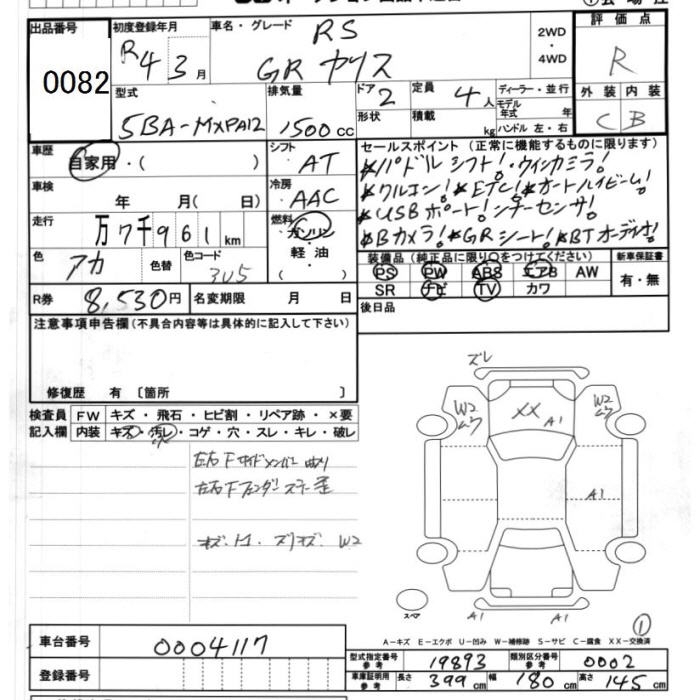 出品番号
0082
初度登録年月
R4 3月
車名・グレード
RS
GR ヤリス
2WD
・
4WD
評価点
R
外装 内装
C B
型式
5BA-MXPA12
排気量
1500cc
ドア
2
形状
定員
4人
積載
kg
ディーラー・並行
モデル年式 年
ハンドル 左・右
車歴
自家用・( )
シフト
AT
車検
年 月( 日)
冷房
AAC
走行
万7千961km
燃料
ガソリン
・
軽・油
( )
色
アカ
色替
色コード
3U5
R券
8,530円
名変期限 月 日
セールスポイント(正常に機能するものに限ります)
*パドルシフト!・ウィンカミラ!
*クルコン!*ETC!*オートハイビーム!
*USBポート!シナーセンサ!
*Bカメラ!*GRシート!*BTオーディオ!
装備品(純正品に限り〇をつけてください)
PS PW ABS エアB AW
SR ナビ TV カワ
新車保証書
有・無
後日品
注意事項申告欄(不具合内容等は具体的に記入して下さい)
修復歴 有〔箇所 〕
検査員
記入欄
FW キズ・飛石・ヒビ割・リペア跡・×要
内装 キズ・汚レ・コゲ・穴・スレ・キレ・破レ
左右Fサイドメンバー曲り
左右Fフェンダーステー歪
キズ・トス・スリキズ・W2
ズレ
W2
XX
A1
W2
A1
スペア
A1
A1
①
A-キズ E-エクボ U-凹み W-補修跡 S-サビ C-腐食 XX-交換済
車台番号
0004117
登録番号
型式指定番号
参考
19893
類別区分番号
参考
0002
車庫証明用
参考
長さ 399cm
幅 180cm
高さ 145cm